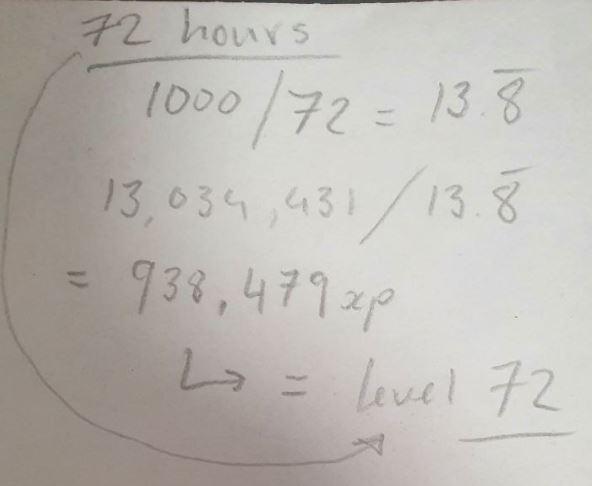 72 hours
1000/72 = 13.8̅
13,034,431/13.8̅
= 938,479xp
↳ = level 72